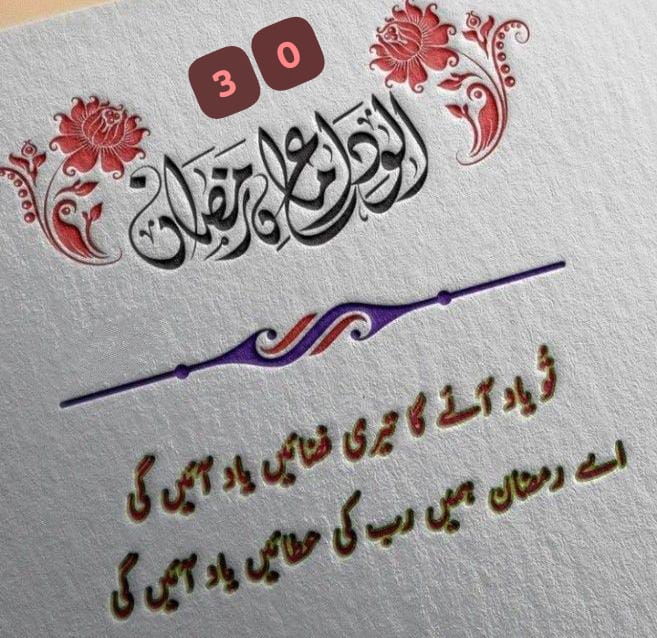 30
الوداع ماہ رمضان
تُو یاد آئے گا تیری فضائیں یاد آئیں گی
اے رمضان ہمیں رب کی عطائیں یاد آئیں گی